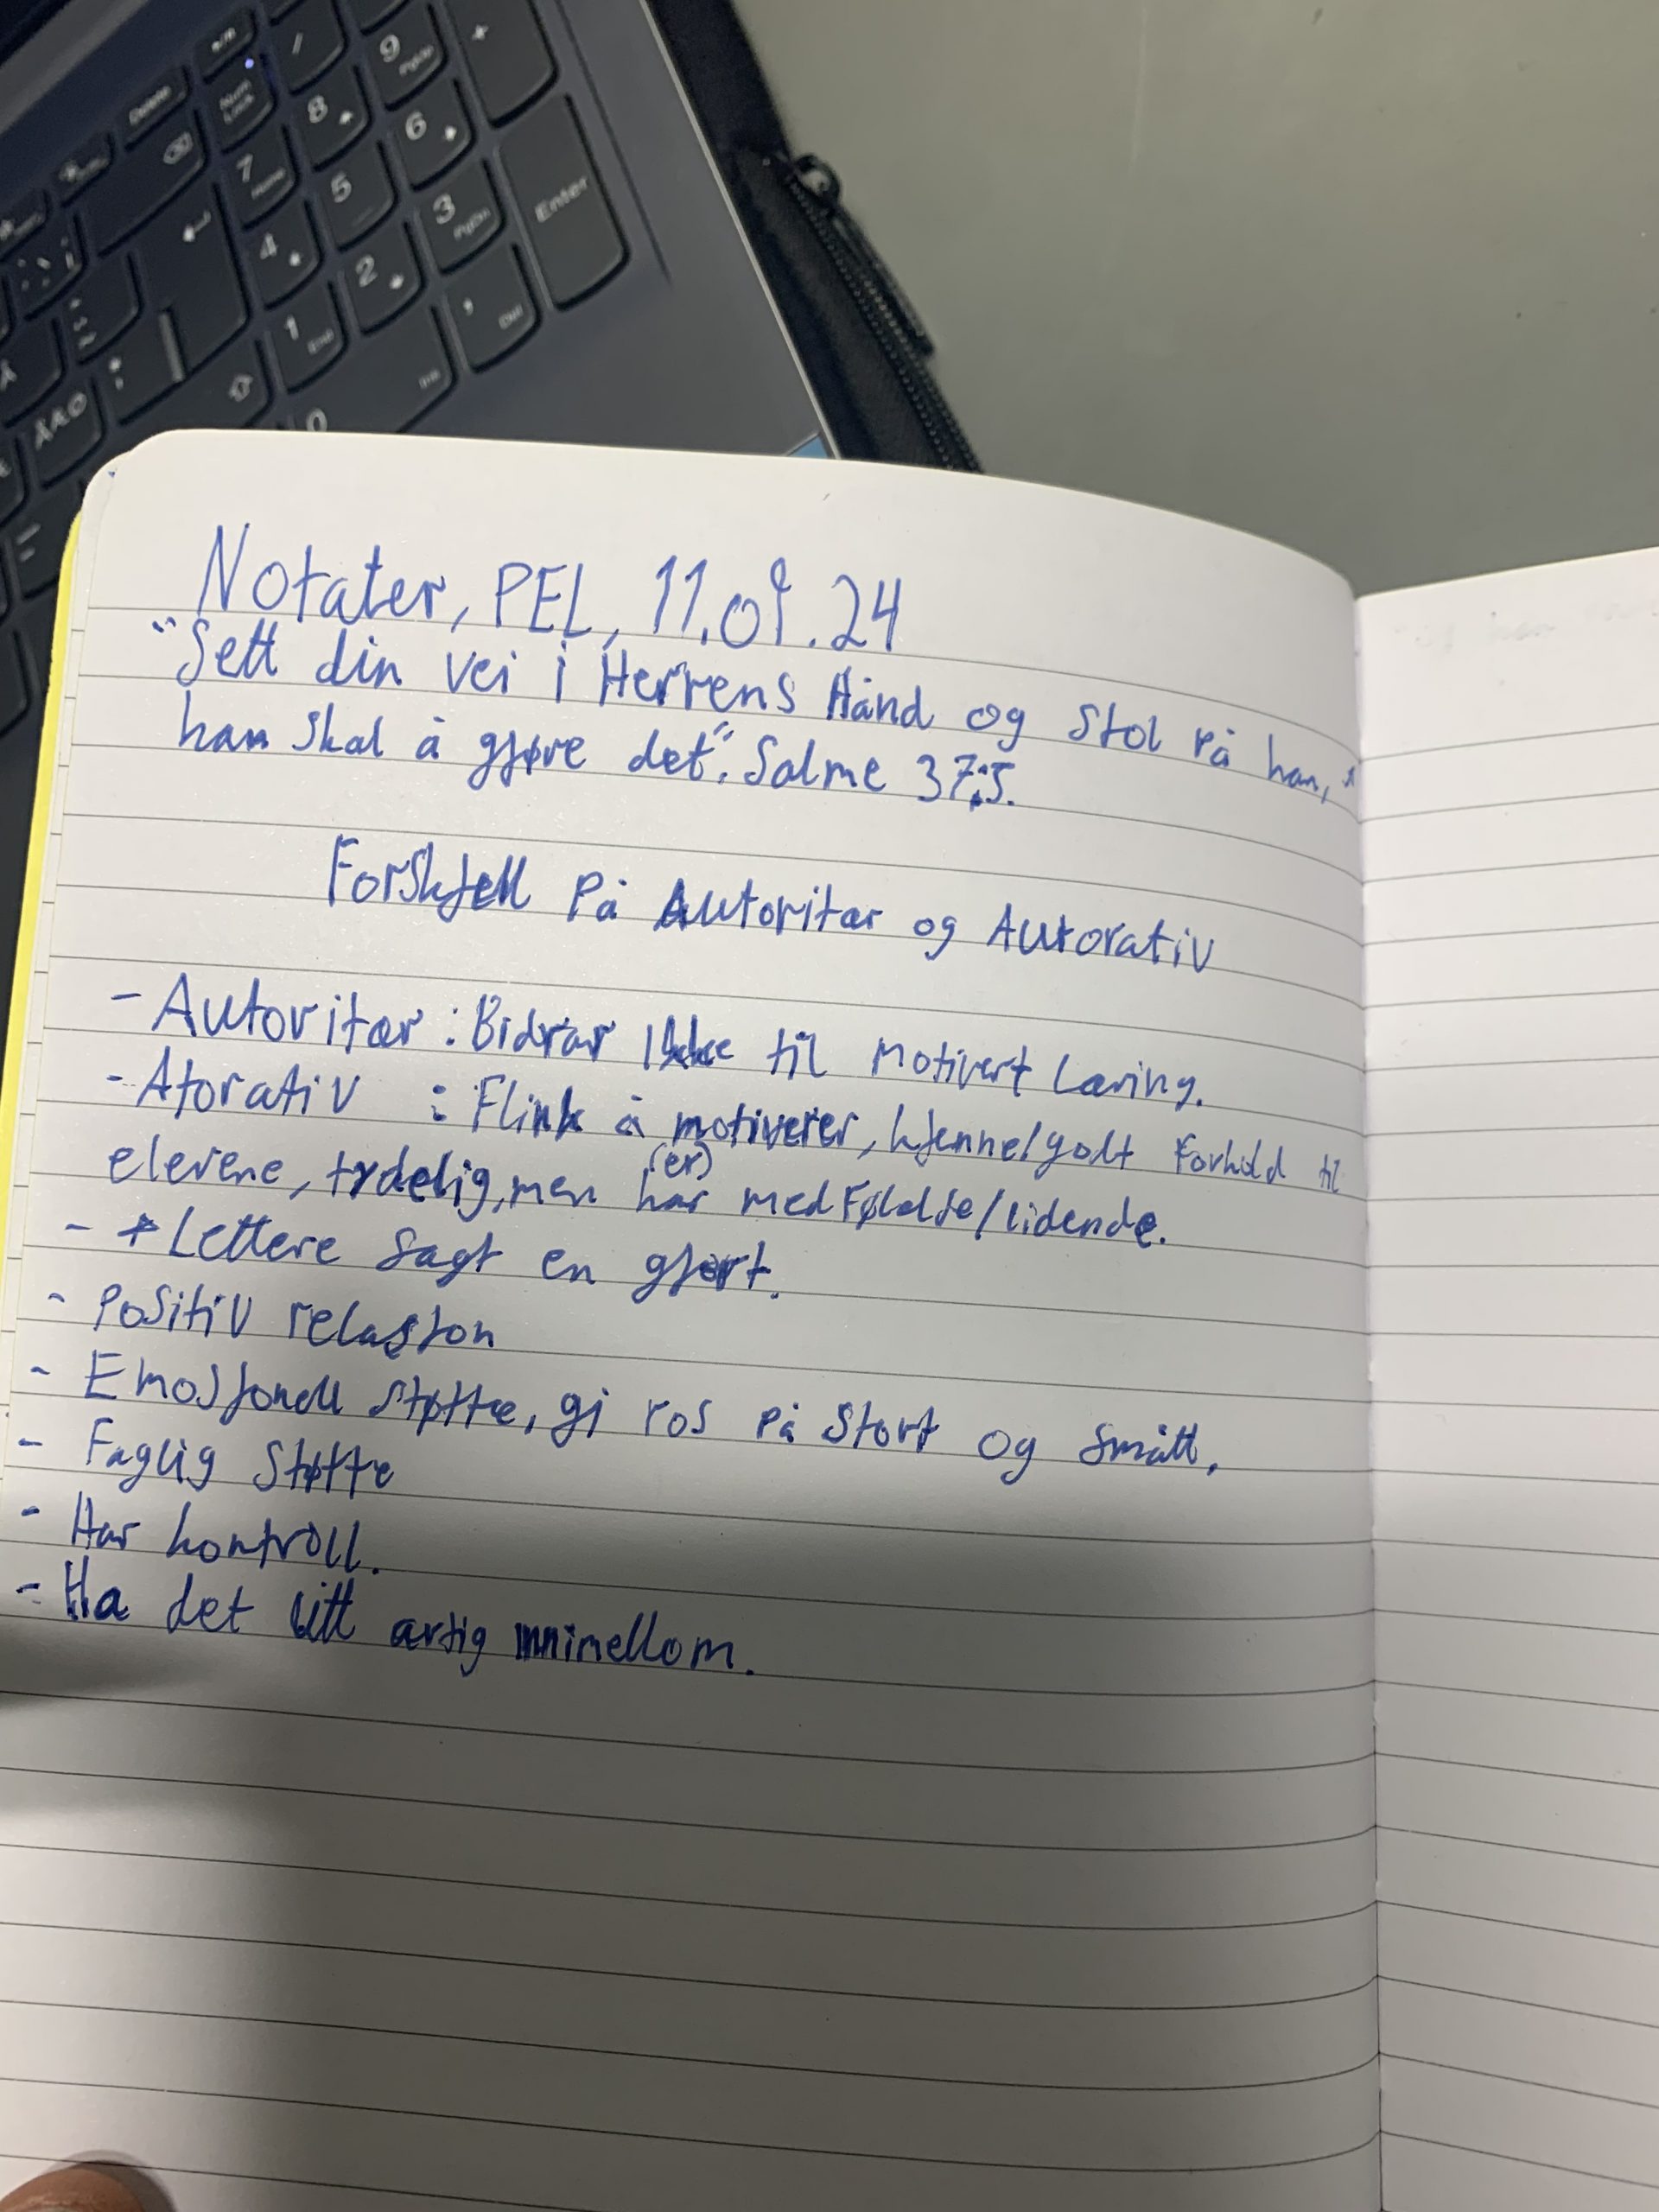 Delete
Num Lock
/
9 PgUp
+
7 Home
8
6
4
5
3 PgDn
Enter
1 End
2
, Del
0 Ins
Å
ÅÆØ
Notater, PEL, 11.09.24
"Sett din vei i Herrens Hånd og Stol på han,
han skal å gjøre det". Salme 37:5.
Forskjell På Autoritær og Autorativ
- Autoritær : Bidrar Ikke til Motivert Læring.
- Atorativ : Flink å motiverer, kjenne/godt Forhold til
(er)
elevene, tydelig, men har medFøldse/lidende.
- * Lettere sagt en gjort.
- Positiv relasjon
- Emosjonell støtte, gi ros på Stort og Smått,
- Faglig Støtte
- Har kontroll.
- Ha det litt artig innimellom.